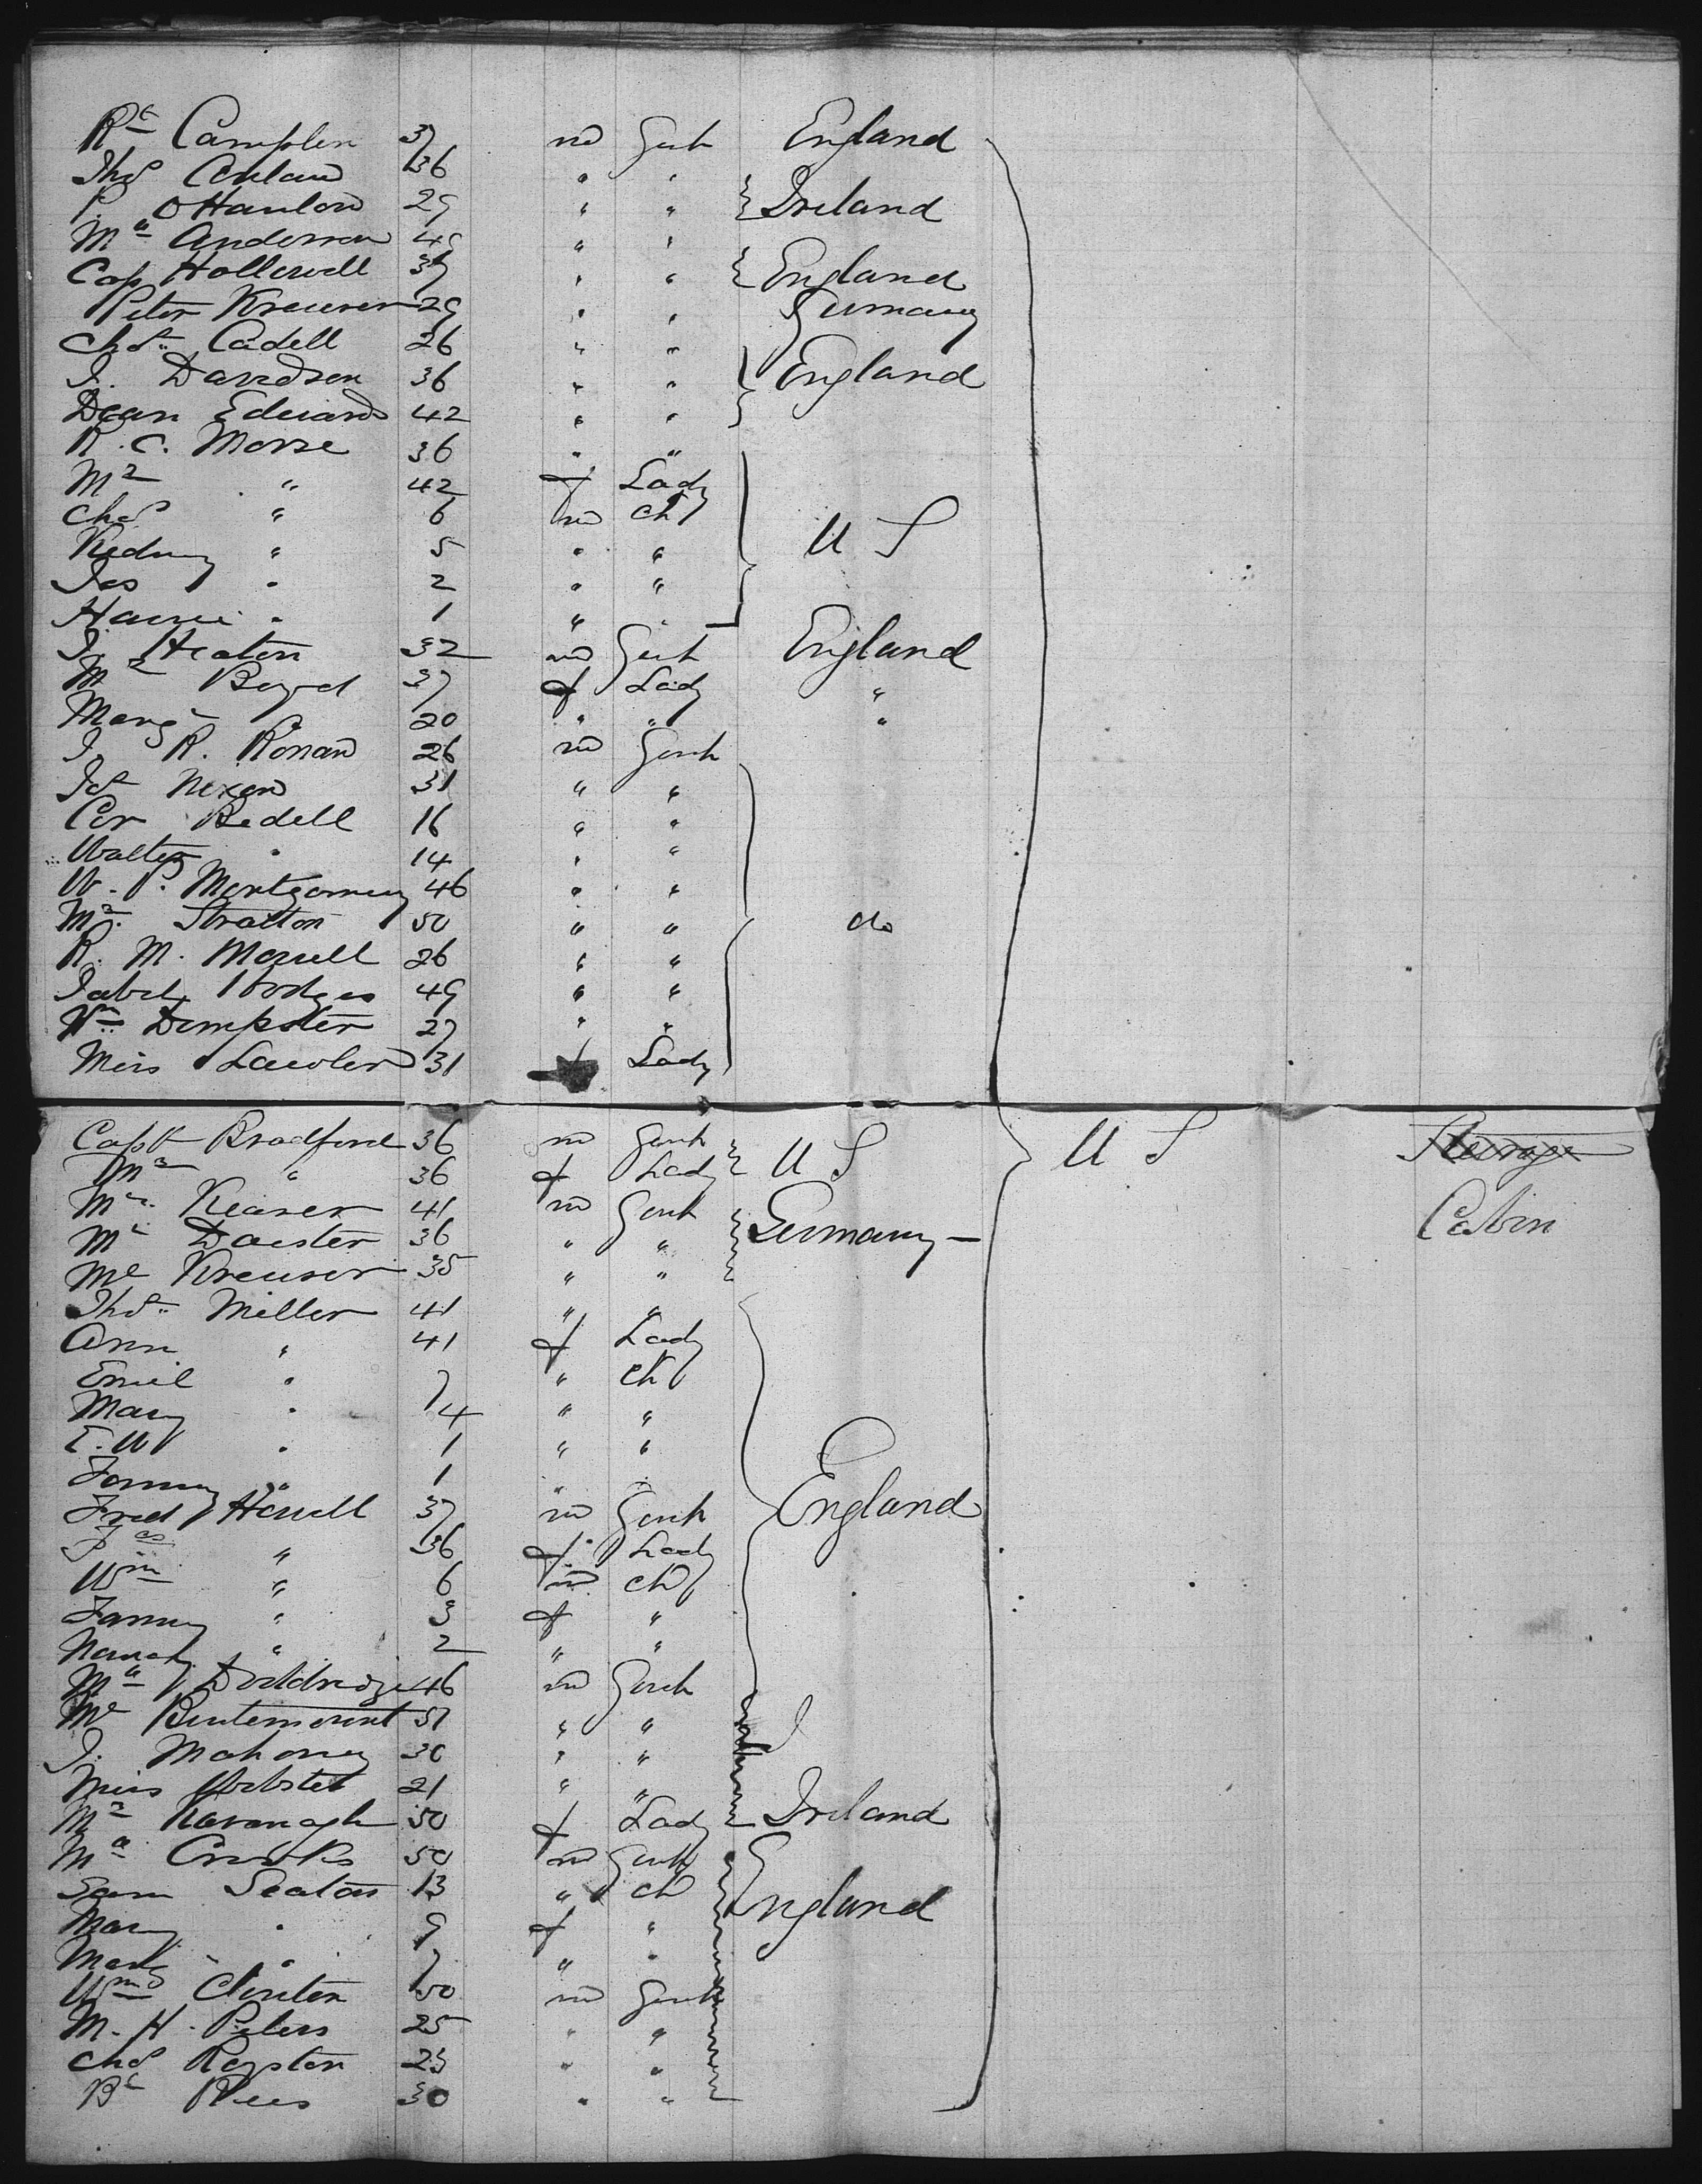 Rt Camplin 37 m Gent England
Thos Conlan 36 " "
P. O Hanlon 29 " " Ireland
Mr Anderson 49 " "
Cap Hollewell 37 " " England
Peter Kreuser 29 " " Germany
Chas Cadell 26 " "
J. Davidson 36 " " England
Dean Edwards 42 " "
R. C. Morse 36 " "
Mrs " 42 f Lady
Chas " 6 m ch U S
Kedney " 5 " "
Jas " 2 " "
" 1 " "
J. Heaton 32 m Gent England
Mrs Boyd 37 f Lady "
Margt " 20 " " "
J. R. Ronan 26 m Gent
Jas Nixon 31 " "
Cor Bedell 16 " "
Walter " 14 " "
W. P. Montgomery 46 " "
Mr. Stratton 50 " " do
R. M. 26 " "
Jabez Hodges 49 " "
Wm Dempster 27 " "
Miss Lawler 31 f Lady
Capt Bradford 36 m Gent U S U S Steerage
Mrs " 36 f Lady
Mr. Keaser 41 m Gent Cabin
Mr 36 " " Germany
Mr Kreuser 35 " "
Thos Miller 41 " "
Ann " 41 f Lady
Emil " 7 " ch
Mary " 4 " "
E. W " 1 " "
Fanny " 1 " "
Fred Howell 37 m Gent England
" 36 f Lady
Wm " 6 m ch
Fanny " 3 f "
" 2 " "
Mr Doddridge 46 m Gent
Mr 51 " "
J. Mahoney 30 " "
Miss Webster 21 " "
Mrs Kavanagh 50 f Lady Ireland
Mr Crooks 50 m Gent
Sam Seaton 13 " ch England
Mary " 9 f "
" 7 " "
Wm Clinton 50 m Gent
M. H. Peters 25 " "
Chas Royston 23 " "
Rees 30 " "